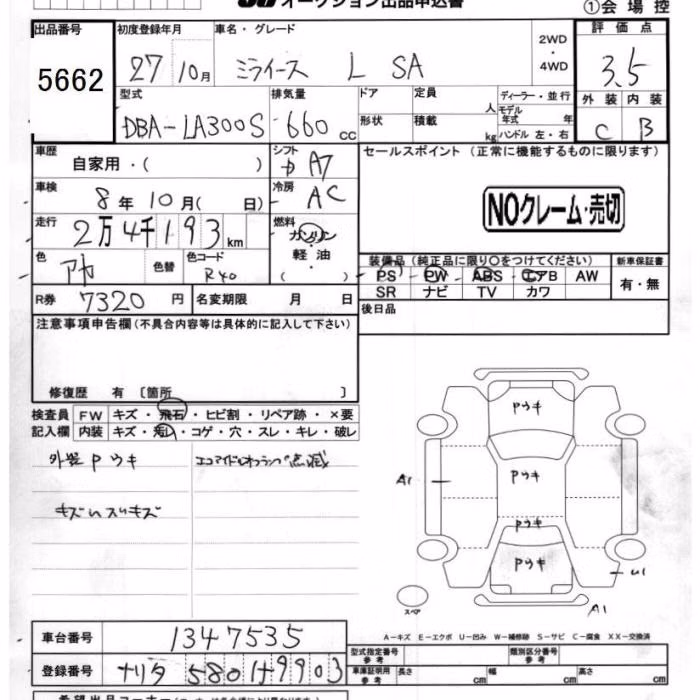 オークション出品申込書
①会場控
出品番号 初度登録年月 車名・グレード 評価点
5662 27 10月 ミライース L SA 2WD・4WD 3.5
型式 排気量 ドア 定員 人 ディーラー・並行 外装 内装
DBA-LA300S 660cc 形状 積載 kg モデル年式 年 ハンドル 左・右 C B
車歴 シフト セールスポイント(正常に機能するものに限ります)
自家用・( ) A7
車検 8年10月( 日) 冷房 AC NOクレーム・売切
走行 2万4千193km 燃料 ガソリン・軽油・( )
装備品(純正品に限り○をつけてください) 新車保証書
色 色替 色コード R40
PS PW ABS エアB AW 有・無
SR ナビ TV カワ
R券 7320円 名変期限 月 日 後日品
注意事項申告欄(不具合内容等は具体的に記入して下さい)
修復歴 有〔箇所 〕
検査員 FW キズ・飛石・ヒビ割・リペア跡・×要
記入欄 内装 キズ・汚レ・コゲ・穴・スレ・キレ・破レ
外装Pウキ
キズいスリキズ
Pウキ
A1 Pウキ
Pウキ
Pウキ
U1
スペア A1
A-キズ E-エクボ U-凹み W-補修跡 S-サビ C-腐食 XX-交換済
車台番号 1347535 型式指定番号 参考 類別区分番号 参考
登録番号 ナリタ 580 9903 車庫証明用 参考 長さ cm 幅 cm 高さ cm